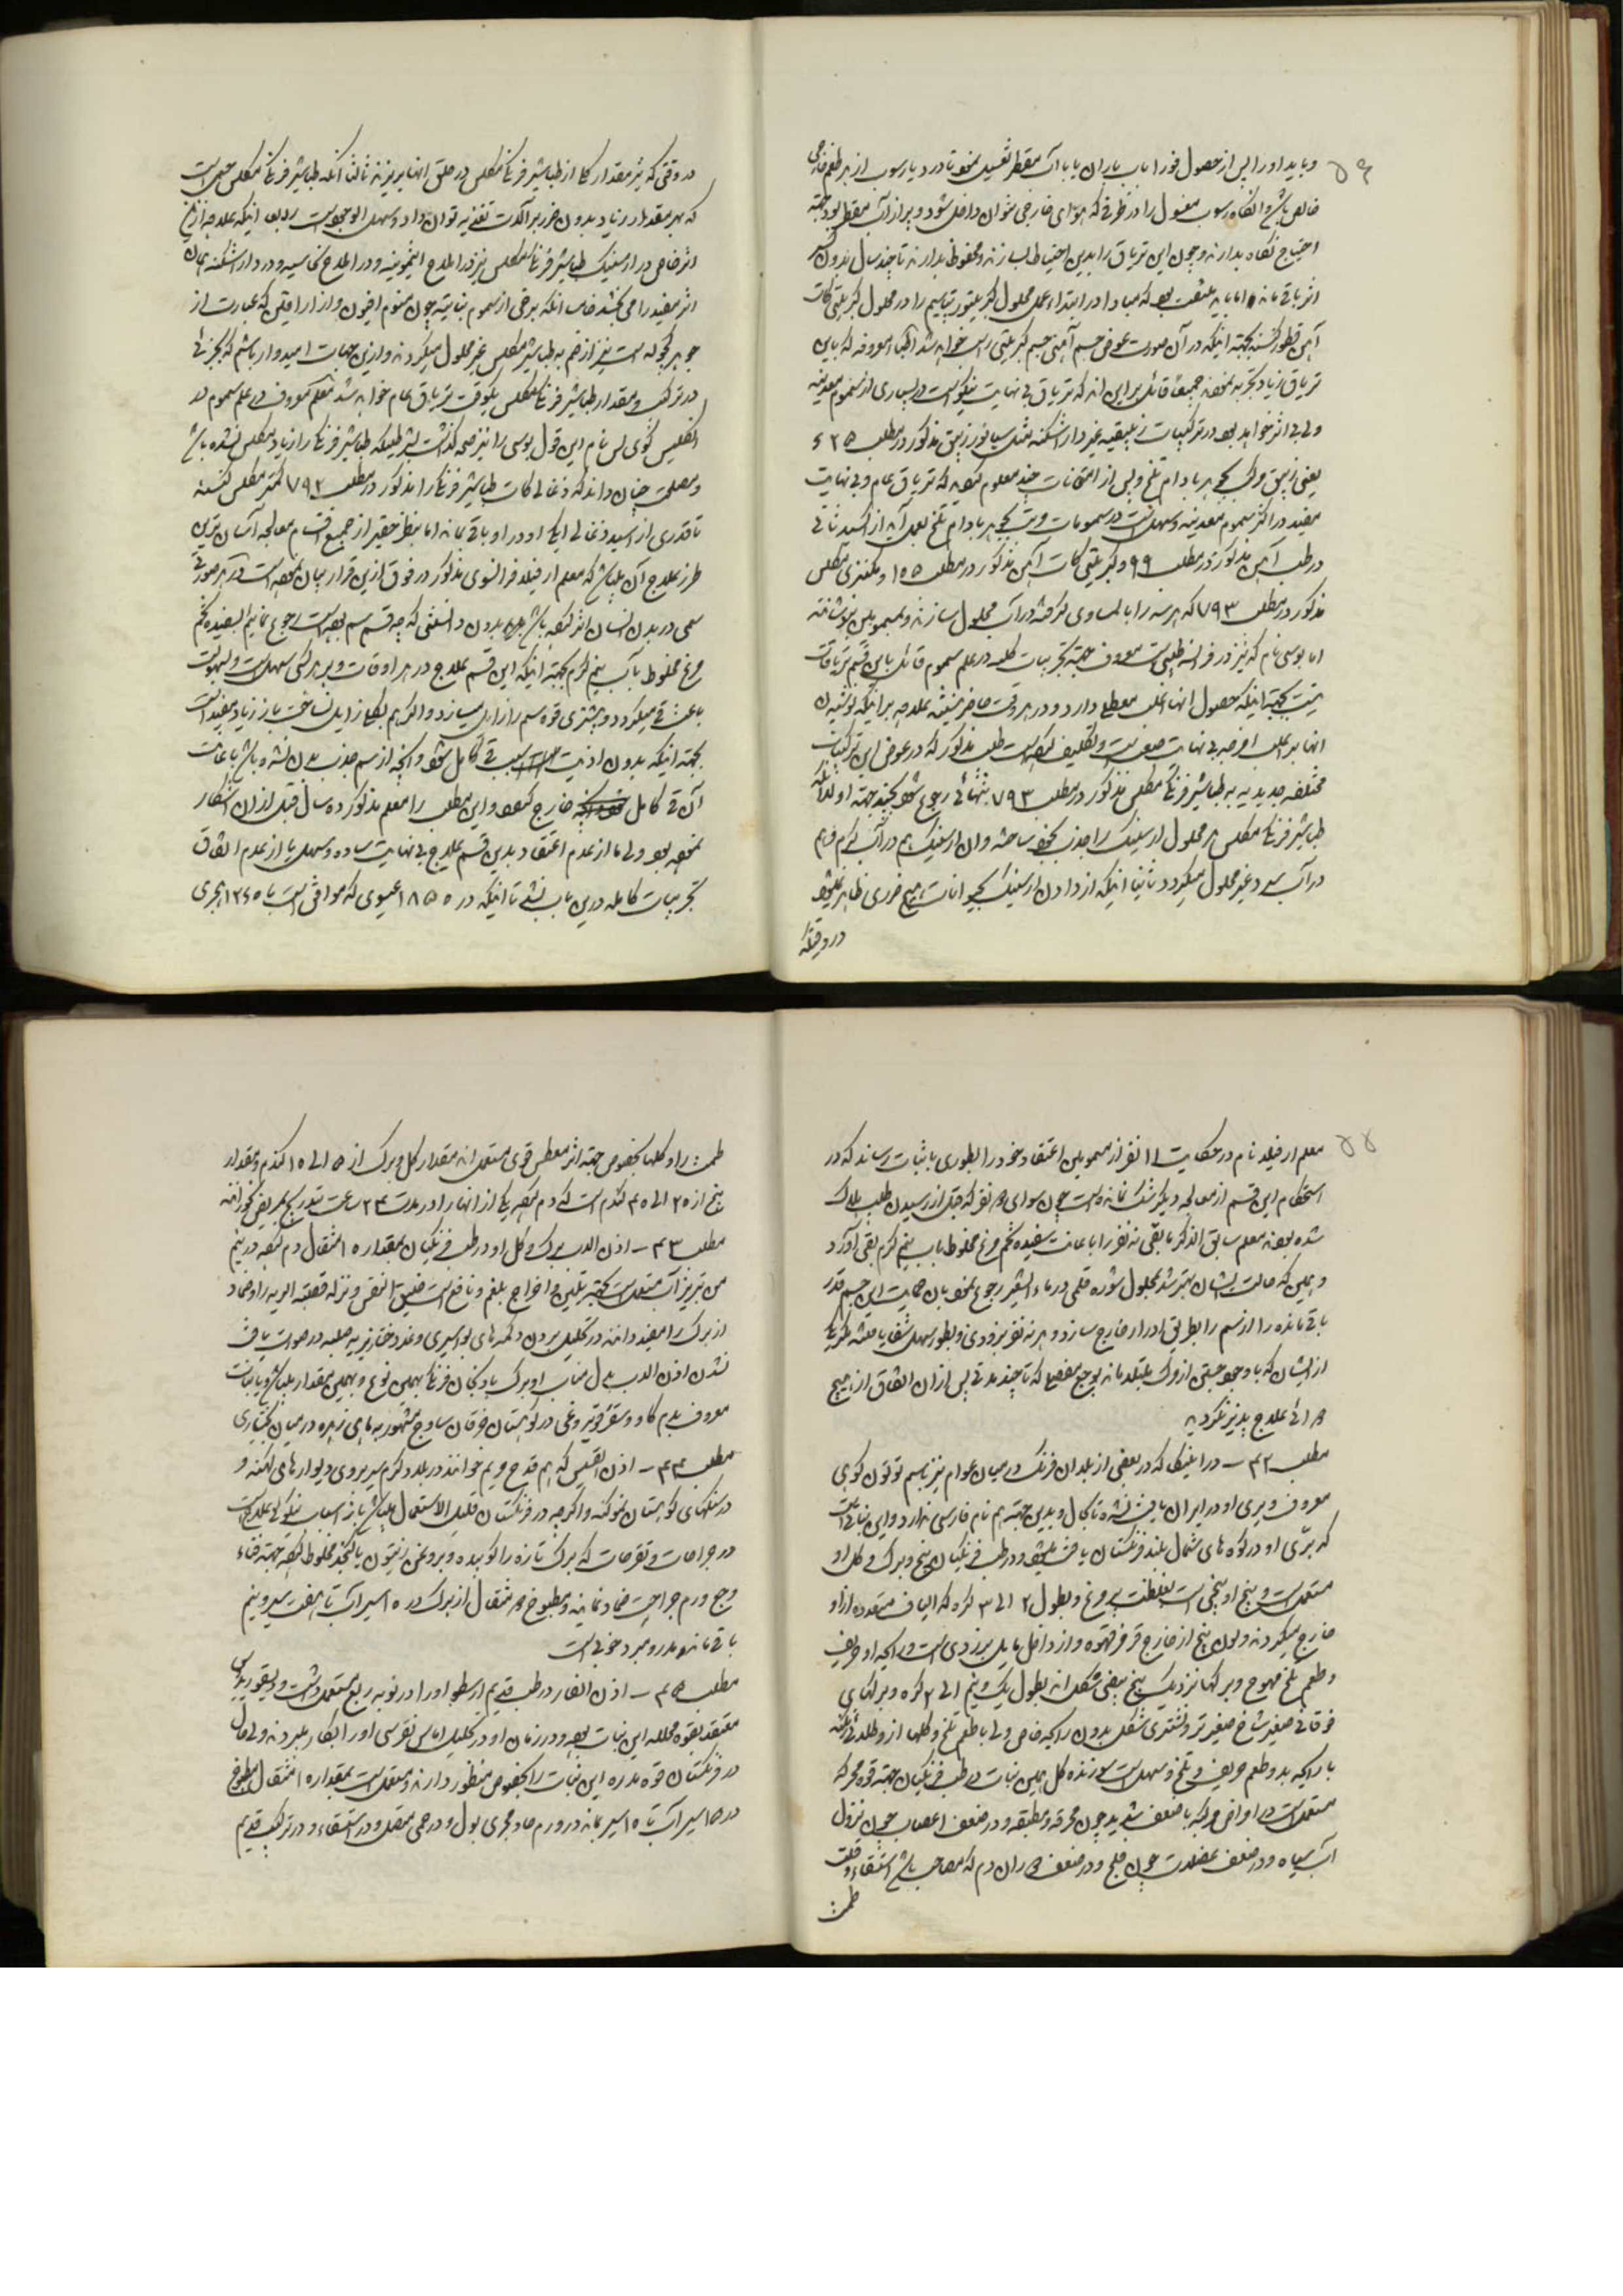 ۵۴
و باید او را پس از حصول فورا باب باران یا با آب مقطر تغسیل نمود تا درد یا رسوب از هر طعم خارجی
خالص باشد و انگاه رسوب مغسول را در ظرفی که هوای خارجی نتوان داخل شود و پر از آب مقطر بود جهة
احتیاج نگاه بدارند و چون این تریاق را بدین احتیاط بسازند و محفوظ بدارند تا چند سال بدون کسر
اثر باقی ماند اما باید ملتفت بود که مبادا در ابتداء عمل محلول کبریتور پتاسیم را در محلول کبریتی کات
آهن قطور کنند بجهة اینکه در آن صورت عوض جسم آهنی جسم کبریتی راسب خواهد شد اطباء معروفه که باین
تریاق زیاد تجربه نموده جمیعا قائل براین اند که تریاق بی نهایت نیکوئیست در بسیاری از سموم معدنیه
ولی بی اثر خواهد بود در ترکیبات زیبقیه غیر دار اشکنه مثل سیانور زیبق مذکور در مطلب ۲۵ ء
یعنی زیبق مرکب بجوهر بادام تلخ و پس از امتحانات چند معلوم گردیده که تریاق عام و بی نهایت
مفید در اکثر سموم معدنیه و سهلست در سمومات مرکب بجوهر بادام تلخ بعمل آید از اکسید ثانی
در طب آهن مذکور در مطلب ۹۹ و کبریتی کات آهن مذکور در مطلب ۱۵۵ و مگنزی مکلس
مذکور در مطلب ۷۹۳ که هر سه را بالمساوی گرفته در آب محلول سازند و بمسمومین بنوشانند
اما بوسی نام که نیز در فرانسه طبیبست معروف جهة تجربیات کلیه در علم سموم قائل باین قسم تریاقات
نیست بجهة اینکه حصول انها اغلب معطلی دارد و در هر وقت حاضر نیستند علاوه بر اینکه نوشیدن
انها بر اغلب امزجه بی نهایت صعبست و تکلیف کرده است طلب مذکور که در عوض این ترکیبات
مختلفه جدیدیه به طباشیر فرنگی مکلس مذکور در مطلب ۷۹۳ بتنهائی رجوع شود بچند جهة اولا آنکه
طباشیر فرنگی مکلس هر محلول ارسنیک را جذب بخود ساخته و ان ارسنیک هم در آب گرم و هم
در آب سرد غیر محلول میگردد ثانیا اینکه از دادن ارسنیک بحیوانات هیچ ضرری ظاهر نمیشود
در وقتیکه
در وقتی که نیز مقدار کمی از طباشیر فرنگی مکلس در حلق انها بریزند ثالثا آنکه طباشیر فرنگی مکلس جسمی است
که بهر مقدار زیاد بدون ضرر بر آلات تغذیه توان داد و سهل الوجود است رابعا اینکه علاوه از این
اثر خاص در ارسنیک طباشیر فرنگی مکلس نیز در املاح انتیمونیه و در املاح نحاسیه و در دار اشکنه همان
اثر مفید را می بخشد خامسا انکه برخی از سموم نباتیه چون سموم افیون و از اراقی که عبارت از
جوهر کچوله است نیز از ضم به طباشیر مکلس غیر محلول میگردند و ازین جهات امیدوار باشم که بجزئی
در ترک مقدار طباشیر فرنگی مکلس یکوقت تریاق عام خواهد شد معلم معروف در علم سموم در
انگلیس کوی لس نام این قول بوسی را نیز صحه گذاشته بشرطیکه طباشیر فرنگی را زیاد مکلس نشده باشد
و مصلحت چنان داند که ذغالی کات طباشیر فرنگی را مذکور در مطلب ۷۹۲ کمتر مکلس کنند
تا قدری از اسید ذغالی ایک او در او باقی ماند اما بنظر حقیر از جمیع اقسام معالجه آسان ترین
طرز علاج آن باشد که معلم ارفیلد فرانسوی مذکور در فوق ازین قرار بیان نموده است در هر صورتی
سمی در بدن انسان اثر کرده باشد بدون دانستن که چه قسم سم بوده است رجوع نمائیم بسفیده تخم
مرغ مخلوط بآب نیم گرم بجهة اینکه این قسم علاج در هر اوقات و بر هر کس سهلست و بسهولت
باعث قی میگردد و بیشتری قوه سم را زایل میسازد و اگر هم بکلی زایل نساخت باز زیاد مفید است
بجهة اینکه بدون اذیت سبب قی کامل شود و آنچه از سم جذب بدن نشده باشد باعانت
آن قی کامل خارج گردد و این مطلب را معلم مذکور ده سال قبل از ان اشکار
نموده بود ولی ما از عدم اعتقاد بدین قسم علاج بی نهایت ساده و سهل یا از عدم اتفاق
تجربیات کامله درین باب نشد تا اینکه در ۱۸۵۰ عیسوی که موافق است با ۱۲۶۵ هجری
۵۵
معلم ارفیلد نام در حکایت ۱۱ نفر از مسمومین اعتقاد خود را بطوری باثبات رساند که در
استحکام این قسم از معالجه دیگر شک نمانده است چون سوای ۲ نفر که قبل از رسیدن طبیب هلاک
شده بودند معلم سابق الذکر مابقی نه نفر را باعانت سفیده تخم مرغ مخلوط باب نیم گرم بقی آورد
و همین که حالت ایشان بهتر شد بمحلول شوره قلمی در ماء الشعیر رجوع نمود بان جهة این جسم قدر
باقی مانده را از سم را بطریق ادرار خارج سازد و هر نه نفر بزودی و بطور سهل شفا یافتند مگر یکی
از ایشان که با وجود جستن از مرگ مبتلا ماند بوجع مفصلی که تا چند مدتی پس از ان اتفاق از هیچ
دوائی علاج پذیر نگردید
مطلب ۴۲ – در امیتکا که در بعضی از بلدان فرنگ در میان عوام نیز باسم توتون کوهی
معروف و بری او در ایران یافت نشده تا بحال و بدین جهة هم نام فارسی ندارد و این نباتی است
که برّی او در کوه های شمال بلند فرنگستان یافت میشود و در طب فرنگیان بیخ و برگ و گل او
مستعملست و بیخ او بیخی است بغلظت پر مرغ و بطول ۲ الی ۳ گره که الیاف متعدده از او
خارج میگردند و لون بیخ از خارج قرمز قهوه و از داخل مایل بزردی است و رائحه او حریف
و طعم تلخ مهوع و برگها نزدیک بیخ بیضی شکل اند بطول یک و نیم الی ۲ گره و برگهای
فوقانی صغیر شاخ صغیر تر و نشتری شکل بدون رائحه خاص ولی با طعم تلخ و گلها از و طلائی رنگ
با رائحه بد و طعم حریف و تلخ و مسهل است سوزنده کل همین نبات در طب فرنگیان جهة قوه محرکه
مستعملست در امراض مرکبه با ضعف شدید چون محرقه و مطبقه و در ضعف اعصاب چون نزول
آب سیاه و در ضعف عضلات چون فلج و در ضعف دوران دم که مصاحب باشد استسقاء و قلت
طمث
طمث را و گلها بخصوص جهة اثر معطس قوی مستعمل اند مقدار گل و برگ از ۵ الی ۱۵ گندم و مقدار
بیخ از ۲۰ الی ۴۵ گندم است که دم کرده یکی از انها را در مدت ۲۴ ساعت بتدریج بمریض بخورانند
مطلب ۴۳ – اذن الدب برگ و گل او در طب فرنگیان بمقدار ۱۵ مثقال دم کرده در نیم
من تبریز آب مستعملست بجهة تلین و اخراج بلغم و نافع است ضیق النفس و نزله قصبة الریه را و ضماد
از برگ را مفید دانند در تحلیل بردن دکمه های بواسیری و غدد خنازیریه صلبه در صورت یافت
نشدن اذن الدب بدل مناب او برگ بادنجان فرنگی بهمین نوع و بهمین مقدار باشد و یا نبات
معروف بدم گاو و سقرقویروغی در کوهستان خرقان ساوج مشهور به ماهی زهره در میان بختیاری
مطلب ۴۴ – اذن القسیس که هم قدح مریم خوانند در بلاد گرمسیر بروی دیوارهای کهنه و
در سنگهای کوهستان نمو کند و اگرچه در فرنگستان قلیل الاستعمال باشد باز اسباب نیکوئی علاجست
در جراحات و تقرحات که برگ تازه را کوبیده و بروغن زیتون یا کنجد مخلوط کرده جهة رفع
وجع ورم جراحت ضماد نمایند و مطبوخ ۲ مثقال از برگ در ۱۰ سیر آب تا هفت سیر و نیم
باقی ماند مدر و مبرد خوبی است
مطلب ۴۵ – اذن الفار در طب قدیم ارسطو او را در نوبه ربع مستعمل داشت و دیسقوریدوس
معتقد بقوه محلله این نبات بوده و در زمان او در تحلیل اماس نقرسی او را بکار میبردند ولی حال
در فرنگستان قوه مدره این نبات را بخصوص منظور دارند و مستعملست بمقدار ۱۵ مثقال مطبوخ
در ۱۵ سیر آب تا ۱۰ سیر ماند در ورم حاد مجری بول و در حمی متصله و در استسقاء و در ترکیب قدیم